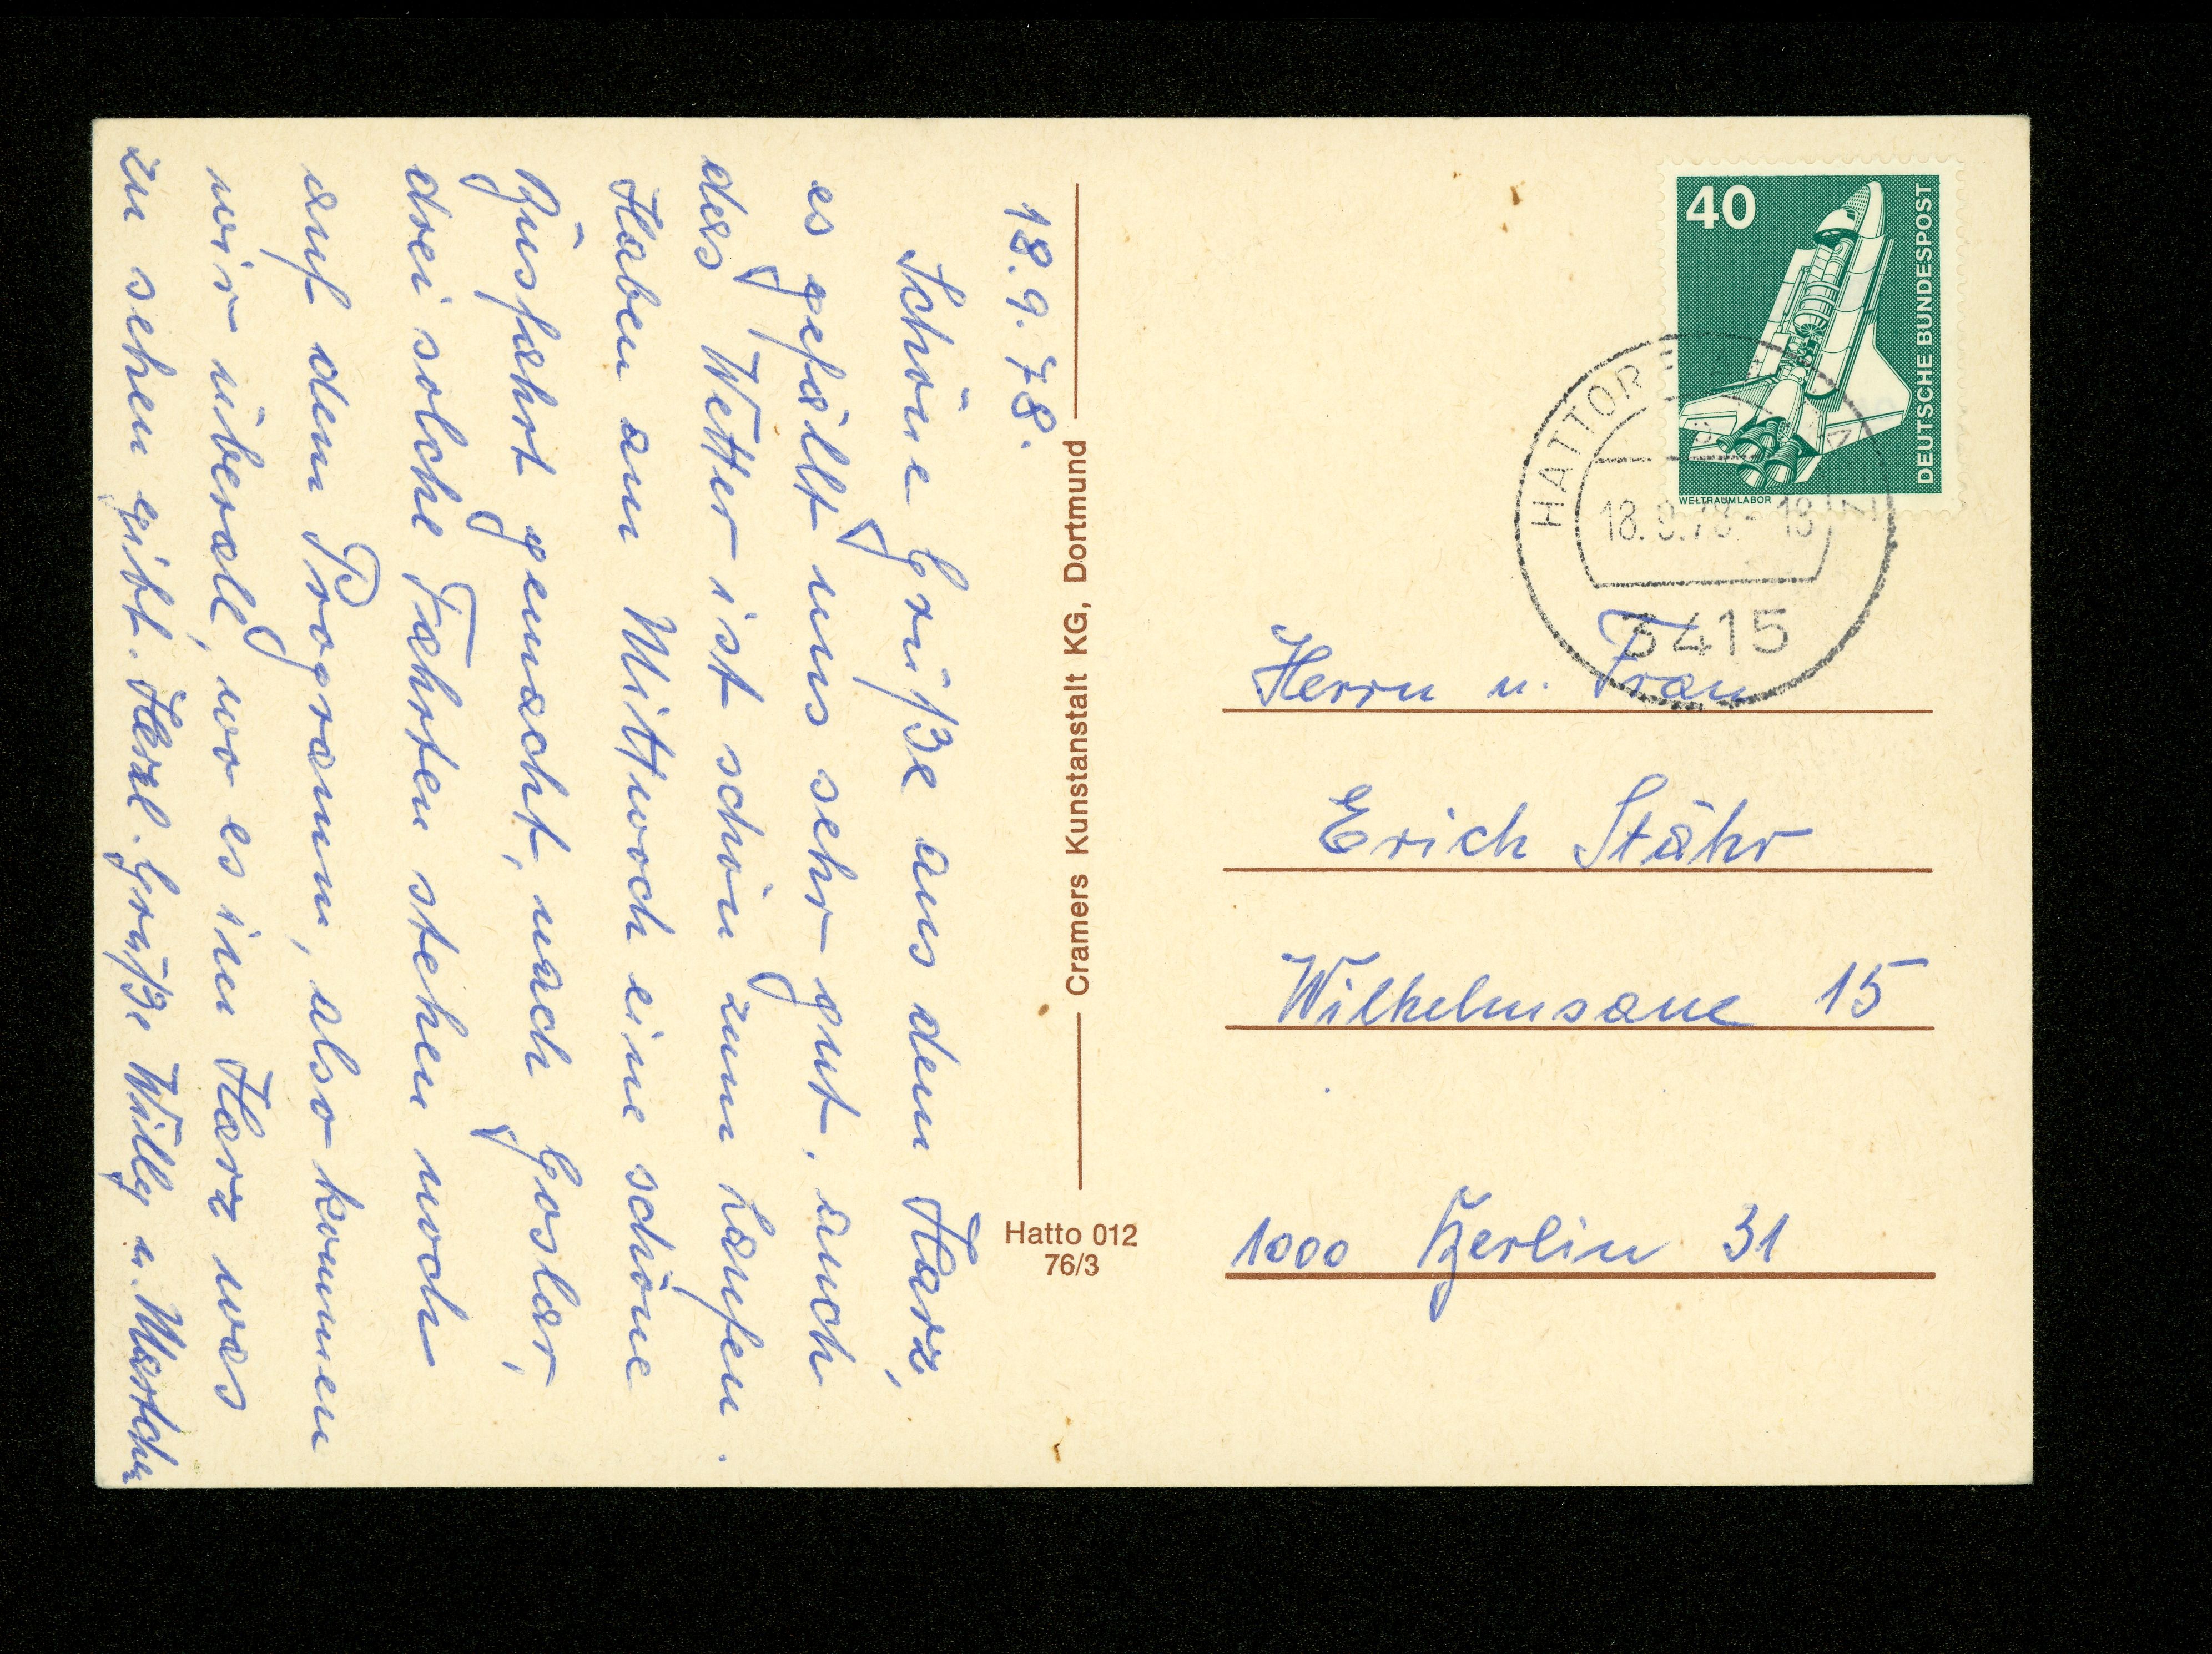 18. 9. 78.
Schöne Grüße aus dem Harz,
es gefällt uns sehr gut, auch
das Wetter ist schön zum Laufen.
Haben am Mittwoch eine schöne
Busfahrt gemacht, nach Goslar,
drei solche Fahrten stehen noch
auf dem Programm, also kommen
wir überall, wo es im Harz was
zu sehen gibt. Herzl. Grüße Willy u. Martchen
Cramers Kunstanstalt KG, Dortmund
Hatto 012
76/3
40
DEUTSCHE BUNDESPOST
WELTRAUMLABOR
HATTOR
18.9.78-18
3415
Herrn u. Frau
Erich Stähr
Wilhelmsaue 15
1000 Berlin 31